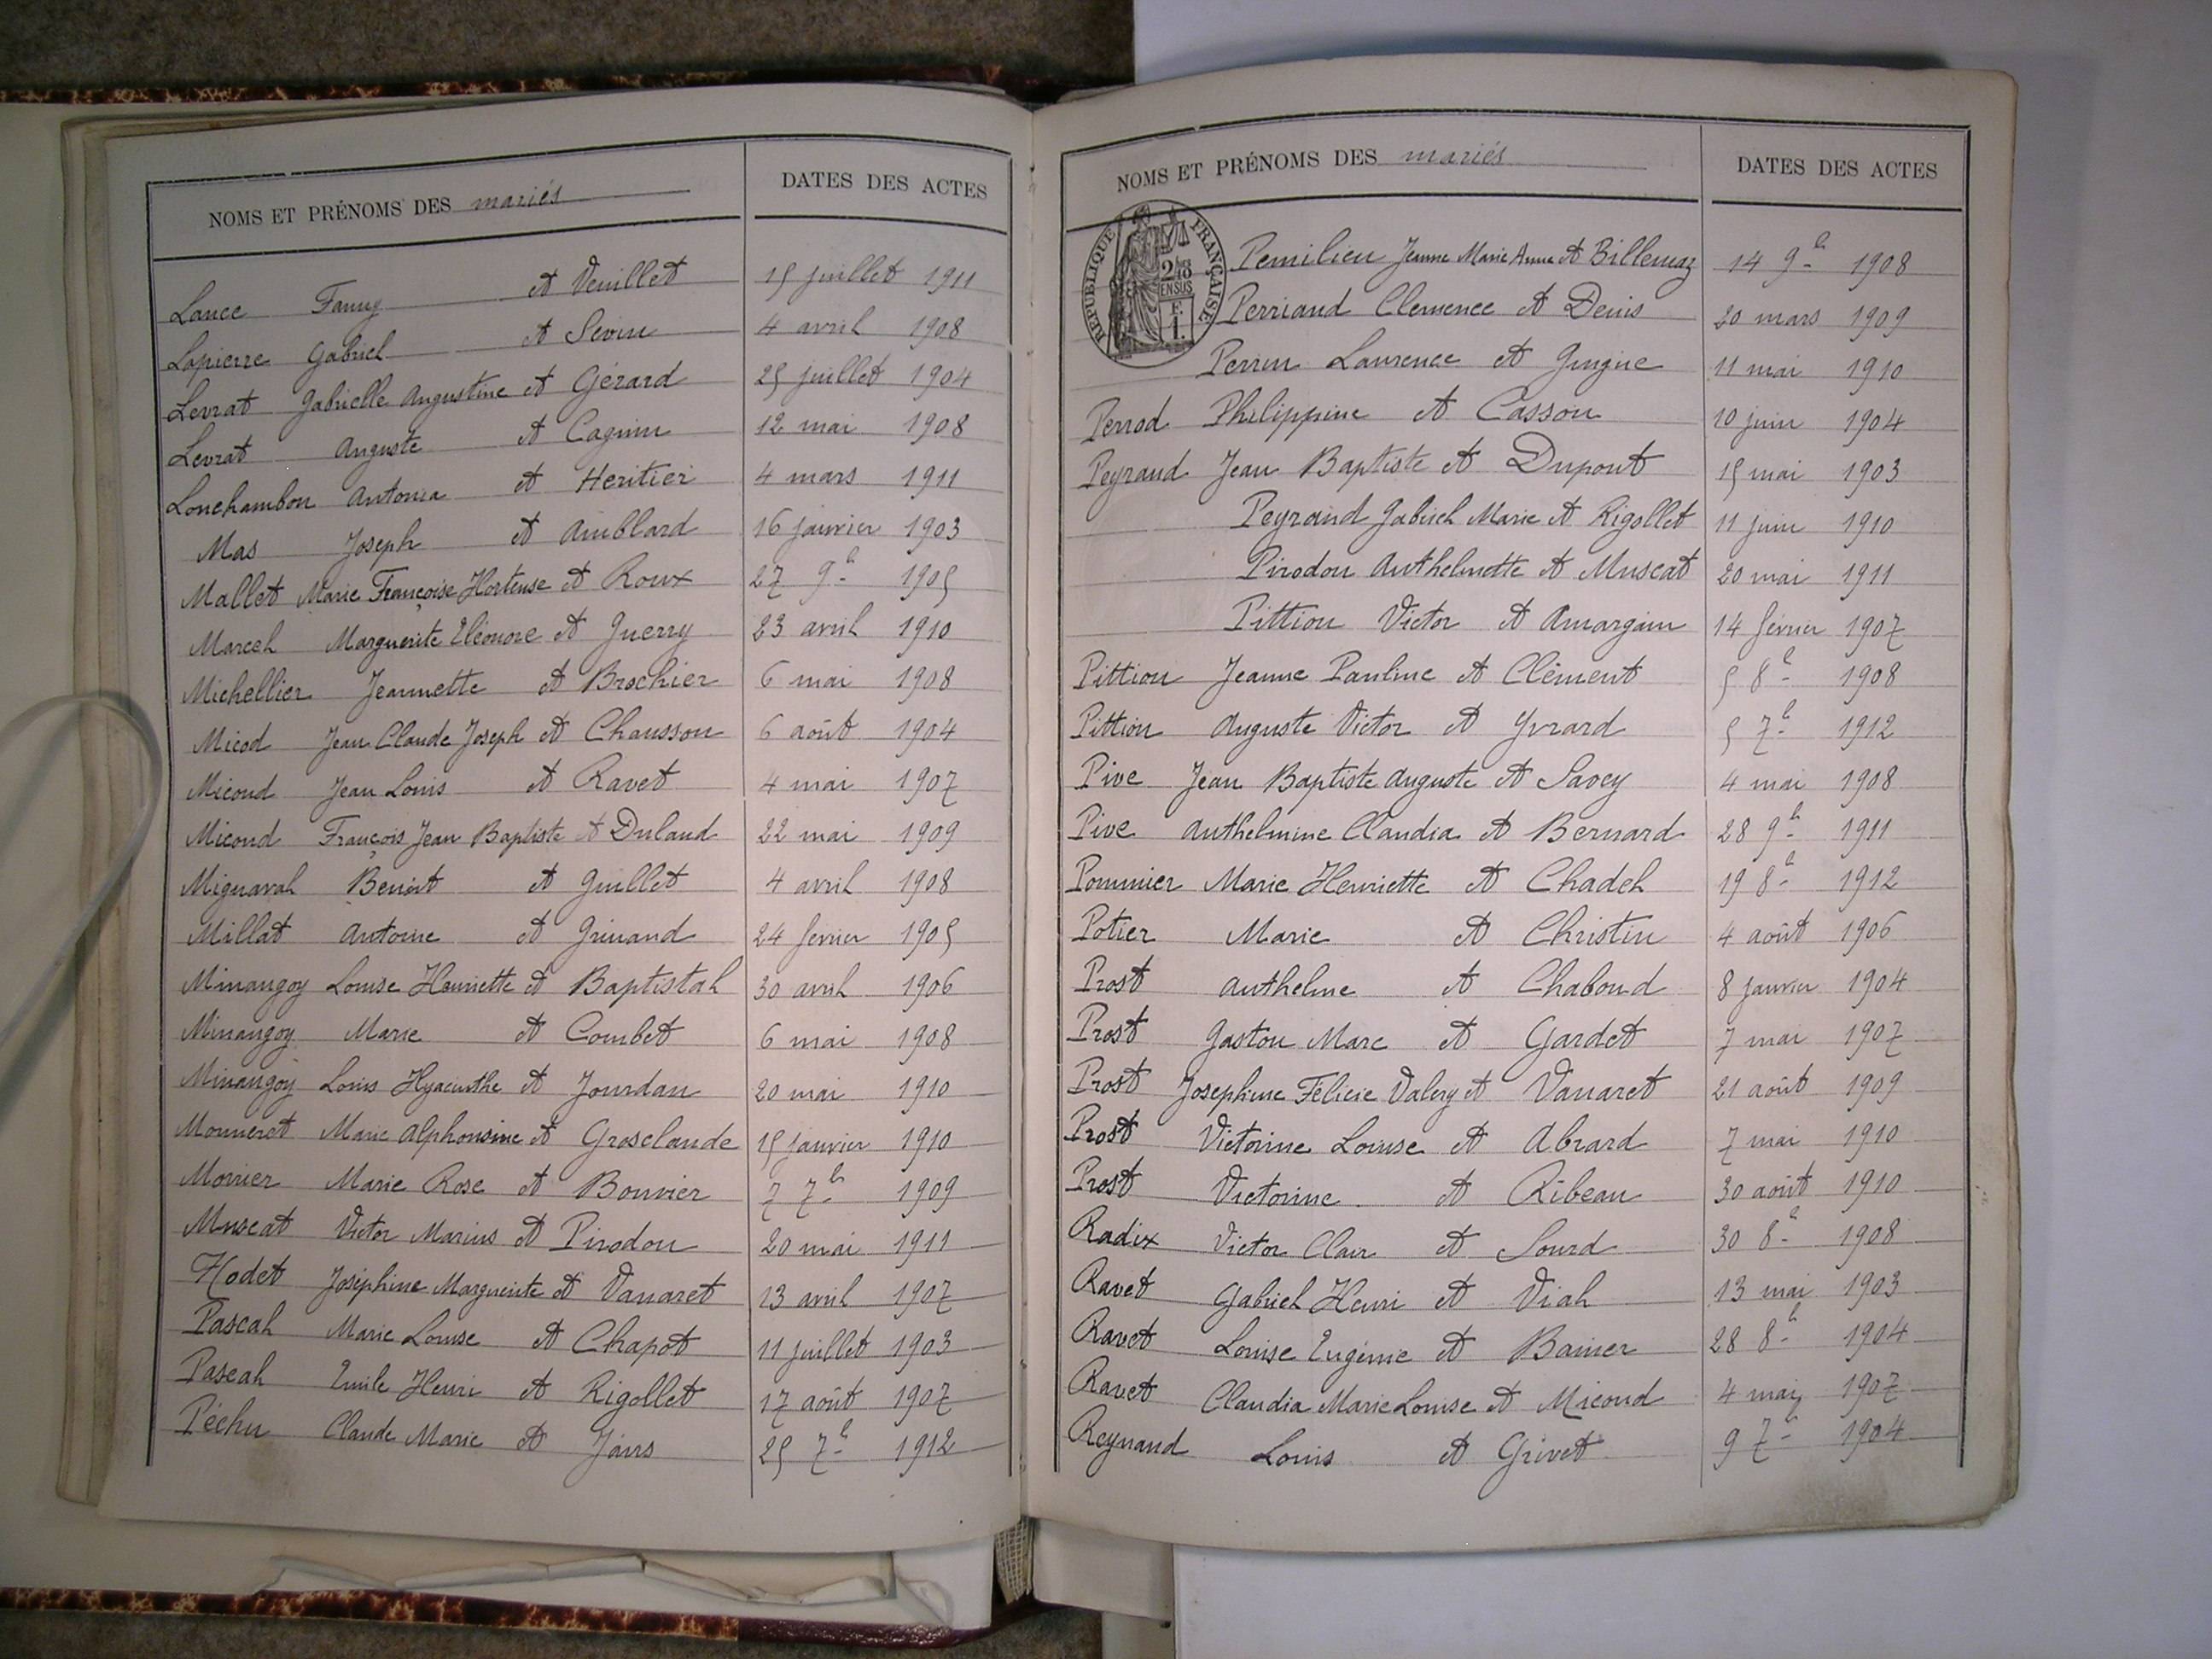 NOMS ET PRÉNOMS DES mariés DATES DES ACTES
Lance Fanny et Veuillet 15 juillet 1911
Lapierre Gabriel et Sevin 4 avril 1908
Levrat Gabrielle Augustine et Gérard 25 juillet 1904
Levrat Auguste et Cagnin 12 mai 1908
Lonchambon Antonia et Heritier 4 mars 1911
Mas Joseph et Amblard 16 janvier 1903
Mallet Marie Françoise Hortense et Roux 27 9b 1905
Marcel Marguerite Eléonore et Guerry 23 avril 1910
Michellier Jeannette et Brochier 6 mai 1908
Micod Jean Claude Joseph et Chausson 6 août 1904
Micoud Jean Louis et Ravet 4 mai 1907
Micoud François Jean Baptiste et Duland 22 mai 1909
Mignaval Benoit et Guillet 4 avril 1908
Millat Antoine et Grinand 24 fevrier 1905
Minangoy Louise Henriette et Baptistal 30 avril 1906
Minangoy Marie et Combet 6 mai 1908
Minangoy Louis Hyacinthe et Jourdan 20 mai 1910
Monneret Marie Alphonsine et Grosclaude 15 janvier 1910
Morrier Marie Rose et Bouvier 7 7b 1909
Muscat Victor Marius et Pirodon 20 mai 1911
Nodet Joséphine Marguerite et Vanaret 13 avril 1907
Pascal Marie Louise et Chapot 11 juillet 1903
Pascal Emile Henri et Rigollet 17 août 1907
Péchu Claude Marie et Jans 25 7b 1912
NOMS ET PRÉNOMS DES mariés DATES DES ACTES
RÉPUBLIQUE FRANÇAISE
2/10es
EN SUS
F.
1.
Pemilieu Jeanne Marie Anne et Billemaz 14 9b 1908
Perriand Clemence et Denis 20 mars 1909
Perrin Laurence et Gingue 11 mai 1910
Perrod Philippine et Casson 10 juin 1904
Peyraud Jean Baptiste et Dupont 15 mai 1903
Peyraud Gabriel Marie et Rigollet 11 juin 1910
Pirodon Anthelmette et Muscat 20 mai 1911
Pittion Victor et Amargain 14 février 1907
Pittion Jeanne Pauline et Clément 5 8b 1908
Pittion Auguste Victor et Yvrard 5 7b 1912
Pive Jean Baptiste Auguste et Savey 4 mai 1908
Pive Anthelmine Claudia et Bernard 28 9b 1911
Pommier Marie Henriette et Chadel 19 8b 1912
Potier Marie et Christin 4 août 1906
Prost Anthelme et Chaboud 8 janvier 1904
Prost Gaston Marc et Gardet 7 mai 1907
Prost Josephine Félicie Valery et Vanaret 21 août 1909
Prost Victorine Louise et Abrard 7 mai 1910
Prost Victorine et Ribeau 30 août 1910
Radix Victor Clair et Sourd 30 8b 1908
Ravet Gabriel Henri et Vial 13 mai 1903
Ravet Louise Eugénie et Bainer 28 8b 1904
Ravet Claudia Marie Louise et Micoud 4 mai 1907
Reynaud Louis et Grivet 9 7b 1904